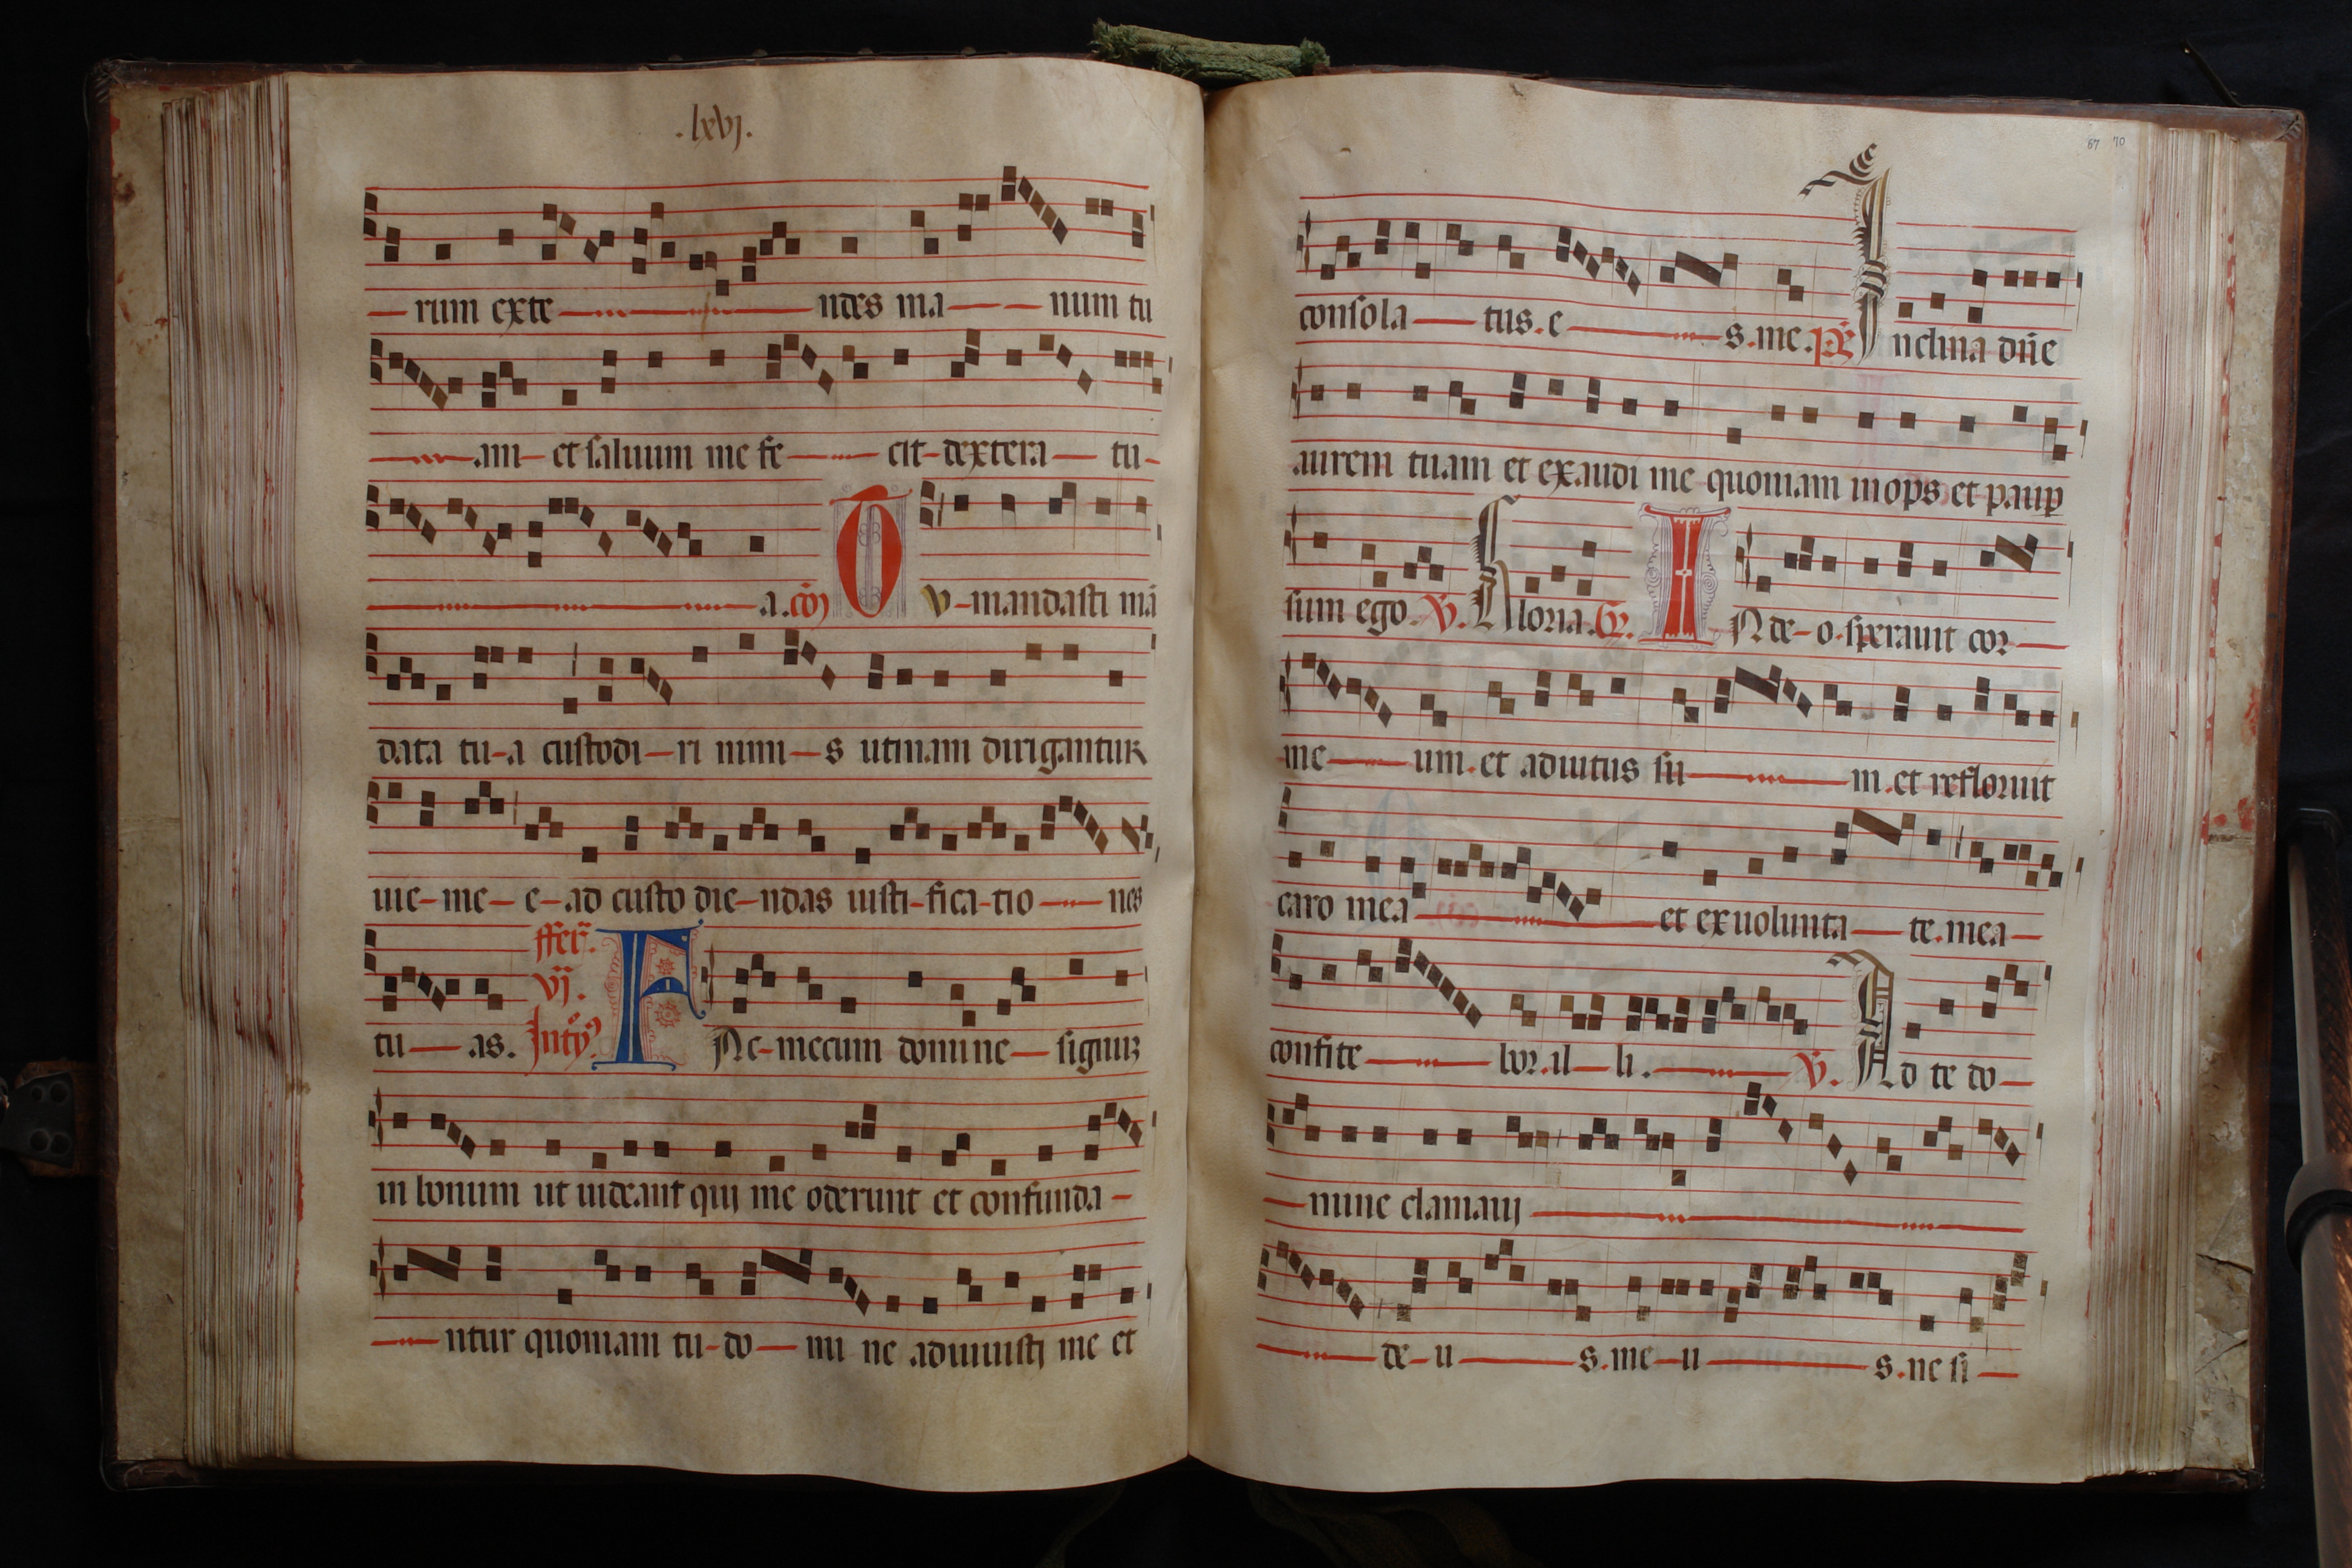 .lxvj.
rum exte ndes ma num tu
am et saluum me fe cit dextera tu
a .co͂
v mandasti ma͂
data tu a custodi ri nimi s utinam dirigantur
uie me e ad custo die ndas iusti fica tio nes
tu as.
ffer͂.
vij.
F Ac mecum domine signu͂
in bonum ut uideant quj me oderunt et confunda
ntur quoniam tu do mi ne adiuuistj me et
67 70
consola tus. e s. me. ps͂ Inclina dn͂e
aurem tuam et exaudi me quoniam inops et paup
sum ego. V. Gloria. Gr. I N de o. sperauit cor
me um. et adiutus su m. et refloruit
caro mea et ex uolunta te. mea
confite bor. il li. V. Ad te do
mine clamauj
de u s. me u s. ne si